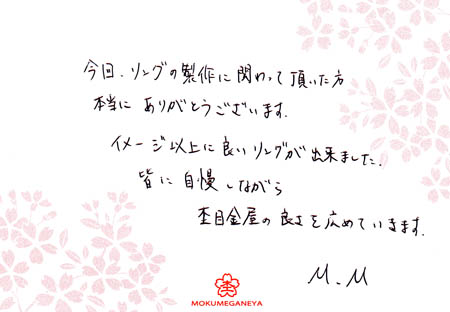 今回、リングの製作に関わって頂いた方
本当に ありがとうございます.
イメージ以上に良いリングが出来ました.
皆に自慢しながら
杢目金屋の良さを広めていきます.
M.M
杢
MOKUMEGANEYA